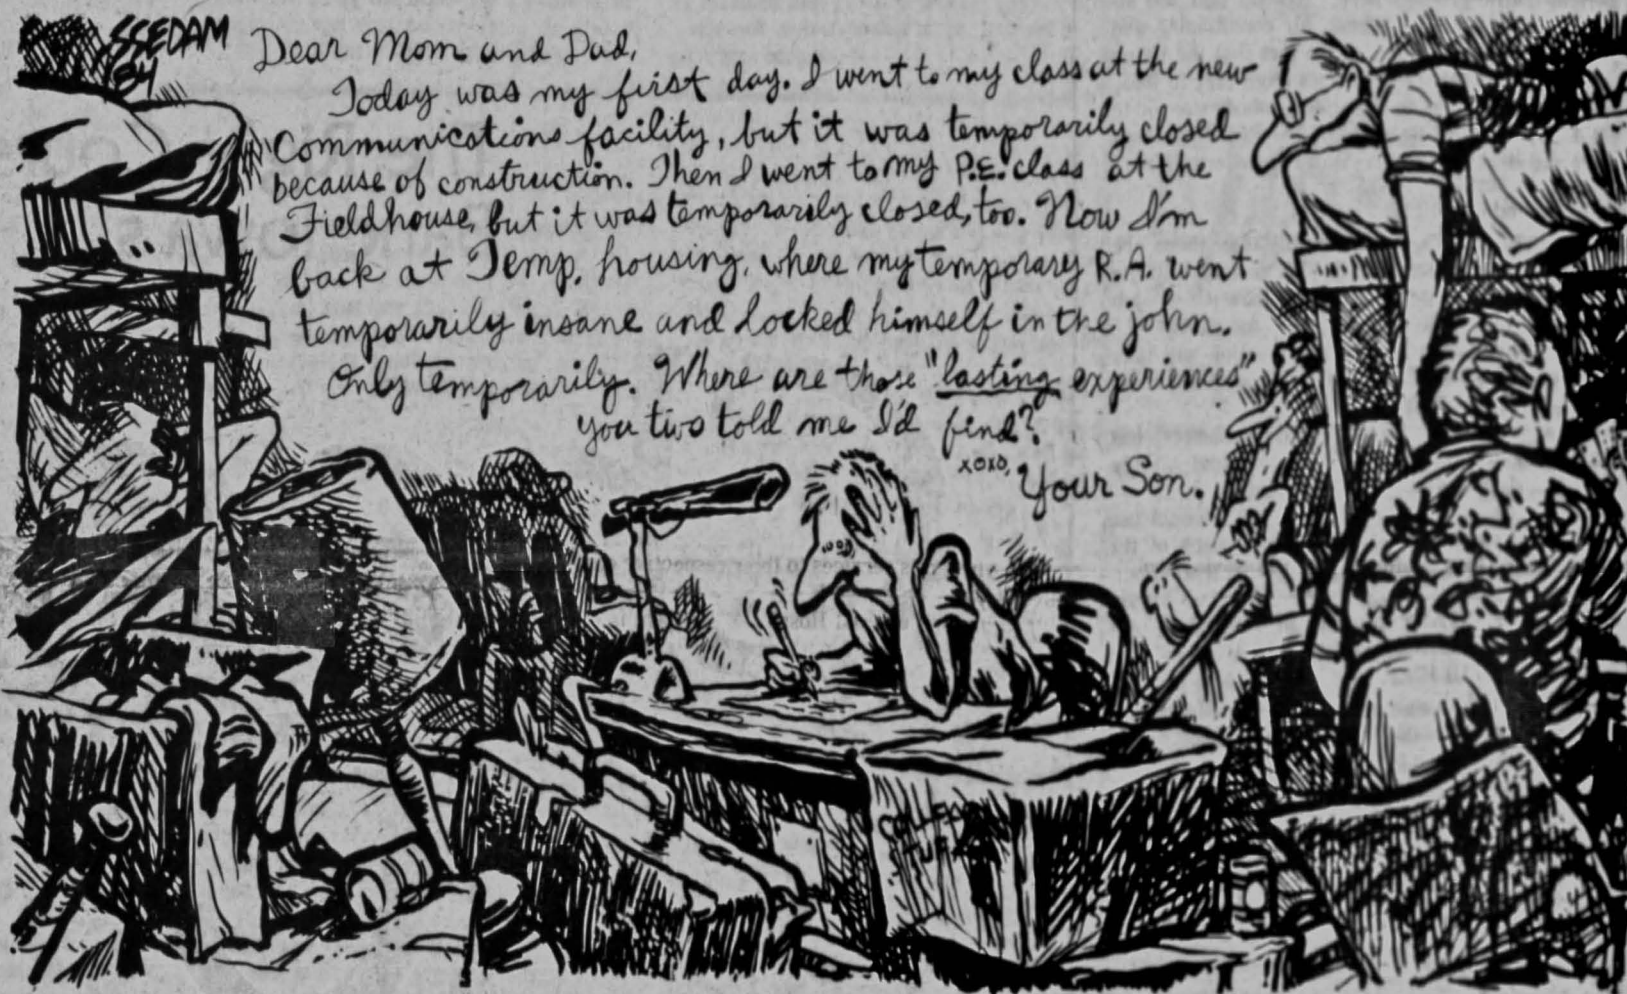 SSEDAM
84
Dear Mom and Dad,
Today was my first day. I went to my class at the new
Communications facility, but it was temporarily closed
because of construction. Then I went to my P.E. class at the
Fieldhouse, but it was temporarily closed, too. Now I'm
back at Temp. housing, where my temporary R.A. went
temporarily insane and locked himself in the john.
Only temporarily. Where are those "lasting experiences"
you two told me I'd find?
xoxo,
Your Son.
COLLEGE
STUFF